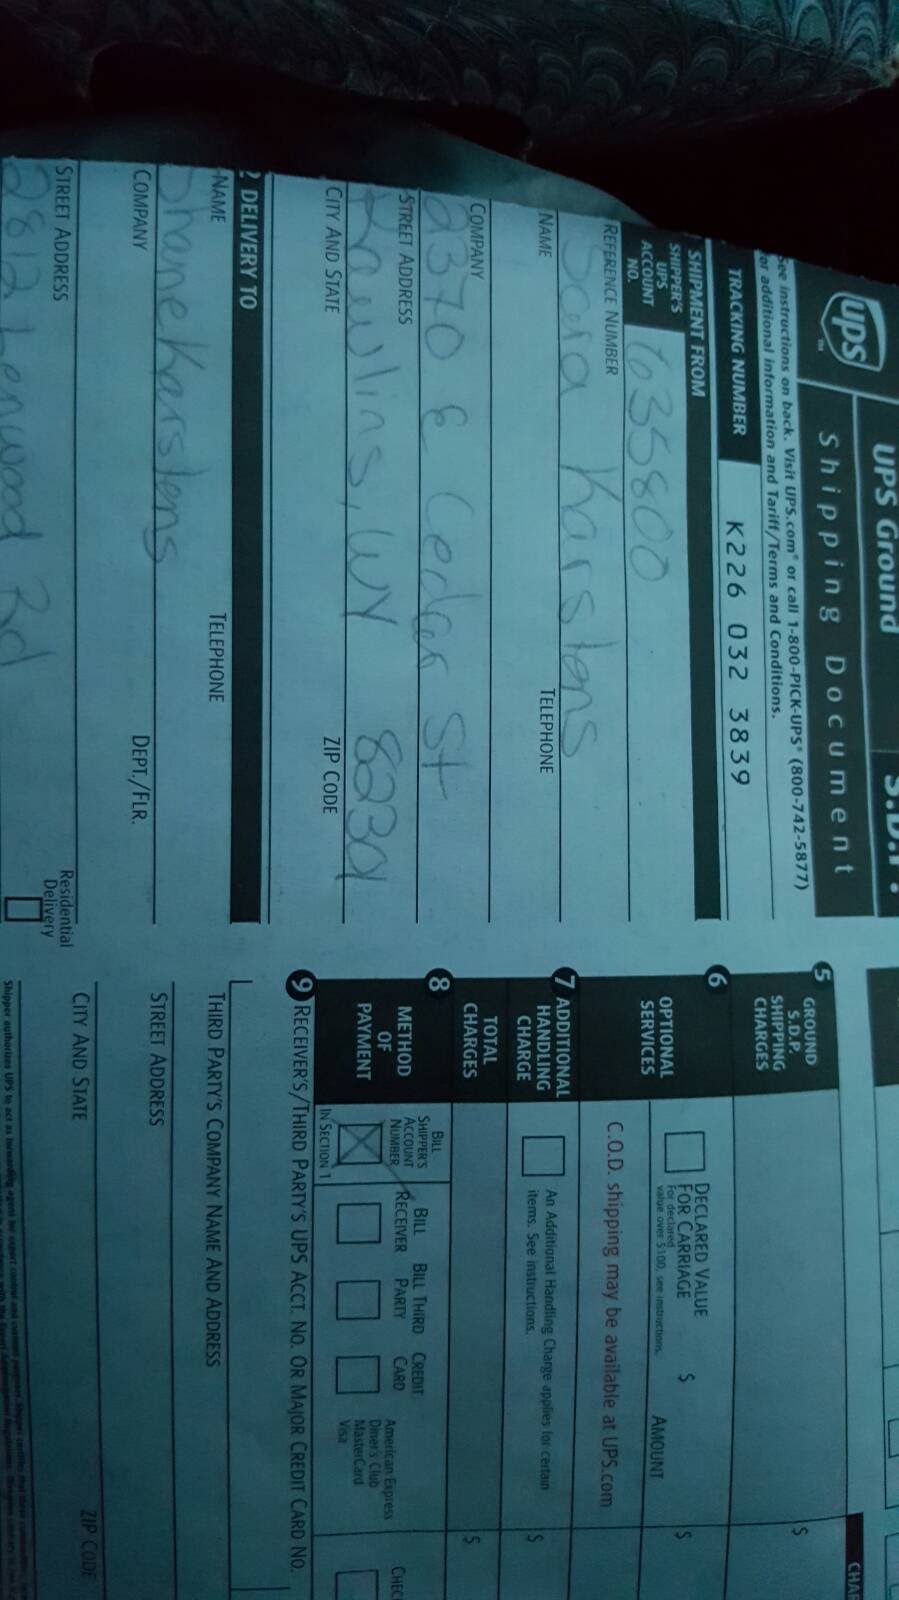 UPS Ground
S.D.P.
ups
Shipping Document
See instructions on back. Visit UPS.com® or call 1-800-PICK-UPS® (800-742-5877)
for additional information and Tariff/Terms and Conditions.
TRACKING NUMBER K226 032 3839
SHIPMENT FROM
SHIPPER'S
UPS
ACCOUNT
NO.
635800
REFERENCE NUMBER
Sara Karstens
NAME
TELEPHONE
COMPANY
2370 E Cedar St
STREET ADDRESS
Rawlins, WY 82301
CITY AND STATE
ZIP CODE
2 DELIVERY TO
NAME
TELEPHONE
Shane Karstens
COMPANY
DEPT./FLR.
STREET ADDRESS
Residential
Delivery
2812 Rd
5 GROUND
S.D.P.
SHIPPING
CHARGES
$
6 OPTIONAL
SERVICES
DECLARED VALUE
FOR CARRIAGE
For declared
value over $100, see instructions.
$
AMOUNT
$
C.O.D. shipping may be available at UPS.com
7 ADDITIONAL
HANDLING
CHARGE
An Additional Handling Charge applies for certain
items. See instructions.
$
TOTAL
CHARGES
$
8 METHOD
OF
PAYMENT
BILL
SHIPPER'S
ACCOUNT
NUMBER
IN SECTION 1
BILL
RECEIVER
BILL THIRD
PARTY
CREDIT
CARD
American Express
Diner's Club
MasterCard
Visa
9 RECEIVER'S/THIRD PARTY'S UPS ACCT. NO. OR MAJOR CREDIT CARD NO.
THIRD PARTY'S COMPANY NAME AND ADDRESS
STREET ADDRESS
CITY AND STATE
ZIP CODE